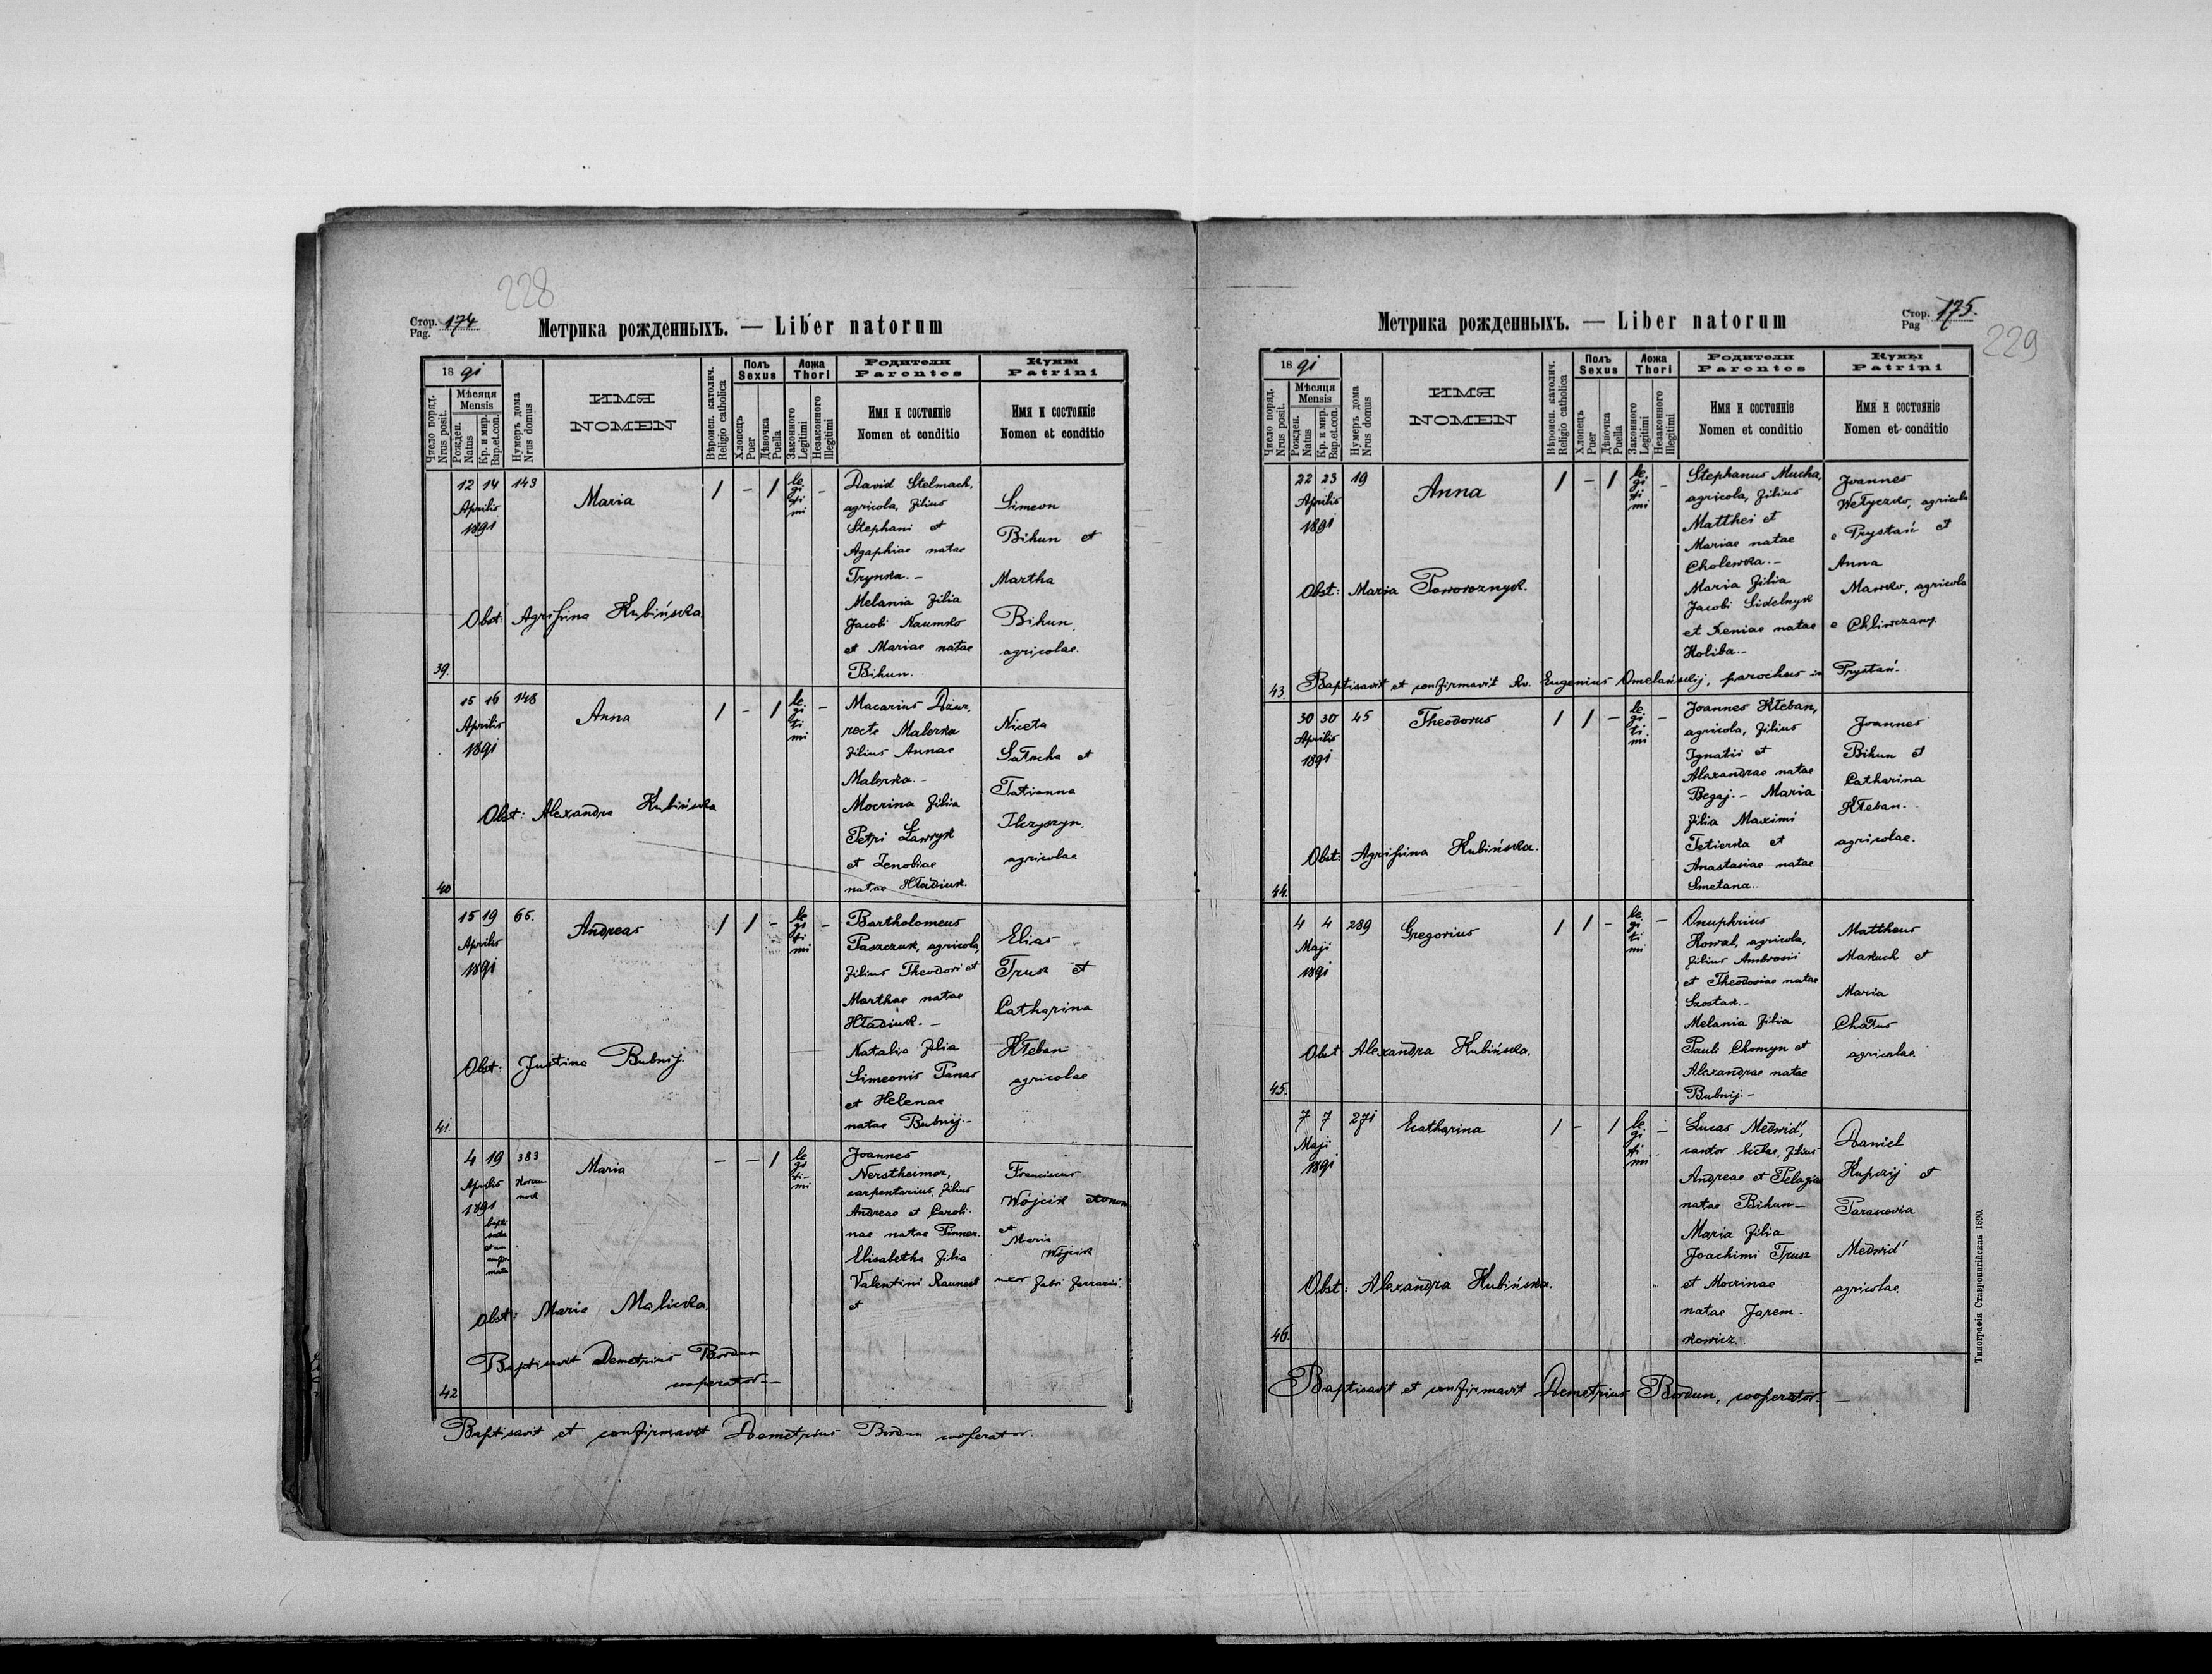 228
Стор. 174
Pag.
Метрика рожденныхъ. — Liber natorum
18 91
Число поряд.
Nrus posit.
Мѣсяця
Mensis
Рожден.
Natus
Кр. и мир.
Bap. et con.
Нумеръ дома
Nrus domus
ИМЯ
NOMEN
Вѣроисп. католич.
Religio catholica
Полъ
Sexus
Хлопецъ
Puer
Дѣвочка
Puella
Ложа
Thori
Законного
Legitimi
Незаконного
Illegitimi
Родители
Parentes
Имя и состояніе
Nomen et conditio
Кумы
Patrini
Имя и состояніе
Nomen et conditio
39.
12 14 143
Aprilis
1891
Maria
1 – 1
le
gi
ti
mi
–
David Stelmach,
agricola, filius
Stephani et
Agaphiae natae
Trynka. –
Melania filia
Jacobi Naumko
et Mariae natae
Bihun.
Simeon
Bihun et
Martha
Bihun,
agricolae.
Obst: Agrifina Kubińska.
40
15 16 148
Aprilis
1891
Anna
1 – 1
le
gi
ti
mi
–
Macarius Dziur,
recte Malerka
filius Annae
Malerka. –
Mocrina filia
Petri Ławryk
et Zenobiae
natae Hładiuk.
Niceta
Sałucha et
Tatianna
Ilczyszyn,
agricolae
Obst: Alexandra Kubińska
41.
15 19 66.
Aprilis
1891
Andreas
1 1 –
le
gi
ti
mi
–
Bartholomeus
Paszczuk, agricola,
filius Theodori et
Marthae natae
Hładiuk. –
Natalia filia
Simeonis Panas
et Helenae
natae Bubnij. –
Elias
Trusz et
Catharina
Kłeban
agricolae
Obst: Justina Bubnij.
42
4 19 383
Aprilis
1891
Maria
– – 1
le
gi
ti-
mi
Joannes
Nerstheimer,
carpentarius, filius
Andreae et Caroli-
nae natae Pinner.
Elisabetha filia
Valentini Raunest
et
Franciscus
Wójcik
et
Maria
Wójcik
uxor fabri ferrarii.
Obst: Maria Malicka.
Baptisavit Demetrius Bordun
cooperator –
Baptisavit et confirmavit Demetrius Bordun cooperator.
Стор. 175.
Pag
229
Метрика рожденныхъ. — Liber natorum
18 91
Число поряд.
Nrus posit.
Мѣсяця
Mensis
Рожден.
Natus
Кр. и мир.
Bap. et con.
Нумеръ дома
Nrus domus
ИМЯ
NOMEN
Вѣроисп. католич.
Religio catholica
Полъ
Sexus
Хлопецъ
Puer
Дѣвочка
Puella
Ложа
Thori
Законного
Legitimi
Незаконного
Illegitimi
Родители
Parentes
Имя и состояніе
Nomen et conditio
Кумы
Patrini
Имя и состояніе
Nomen et conditio
43.
22 23 19
Aprilis
1891
Anna
1 – 1
le
gi
ti
mi
–
Stephanus Mucha,
agricola, filius
Matthei et
Mariae natae
Cholewka. –
Maria filia
Jacobi Sidelnyk
et Xeniae natae
Holiba. –
Joannes
Wełyczko, agricola
e Prystań et
Anna
Mawko, agricola
e Chliwczany.
Obst: Maria Poworoznyk.
Baptisavit et confirmavit Rv. Eugenius Omelańskij, parochus in Prystań.
44.
30 30 45
Aprilis
1891
Theodorus
1 1 –
le
gi
ti
mi
–
Joannes Kłeban,
agricola, filius
Ignatii et
Alexandrae natae
Begaj. – Maria
filia Maximi
Tetierka et
Anastasiae natae
Smetana. –
Joannes
Bihun et
Catharina
Kłeban.
agricolae.
Obst: Agrifina Kubińska.
45.
4 4 289
Maji
1891
Gregorius
1 1 –
le
gi
ti
mi
–
Onuphrius
Kowal, agricola,
filius Ambrosii
et Theodosiae natae
Szostak. –
Melania filia
Pauli Chomyn et
Alexandrae natae
Bubnij. –
Mattheus
Makuch et
Maria
Chałus
agricolae.
Obst Alexandra Kubińska.
46.
7 7 271
Maji
1891
Ecatharina
1 – 1
le
gi
ti
mi
–
Lucas Medwid',
cantor Eccłae, filius
Andreae et Pelagiae
natae Bihun –
Maria filia
Joachimi Trusz
et Mocrinae
natae Jarem-
kowicz.
Daniel
Kupczij et
Parascevia
Medwid'
agricolae.
Obst: Alexandra Kubińska.
Baptisavit et confirmavit Demetrius Bordun, cooperator. –
Типографія Ставропигійская 1890.